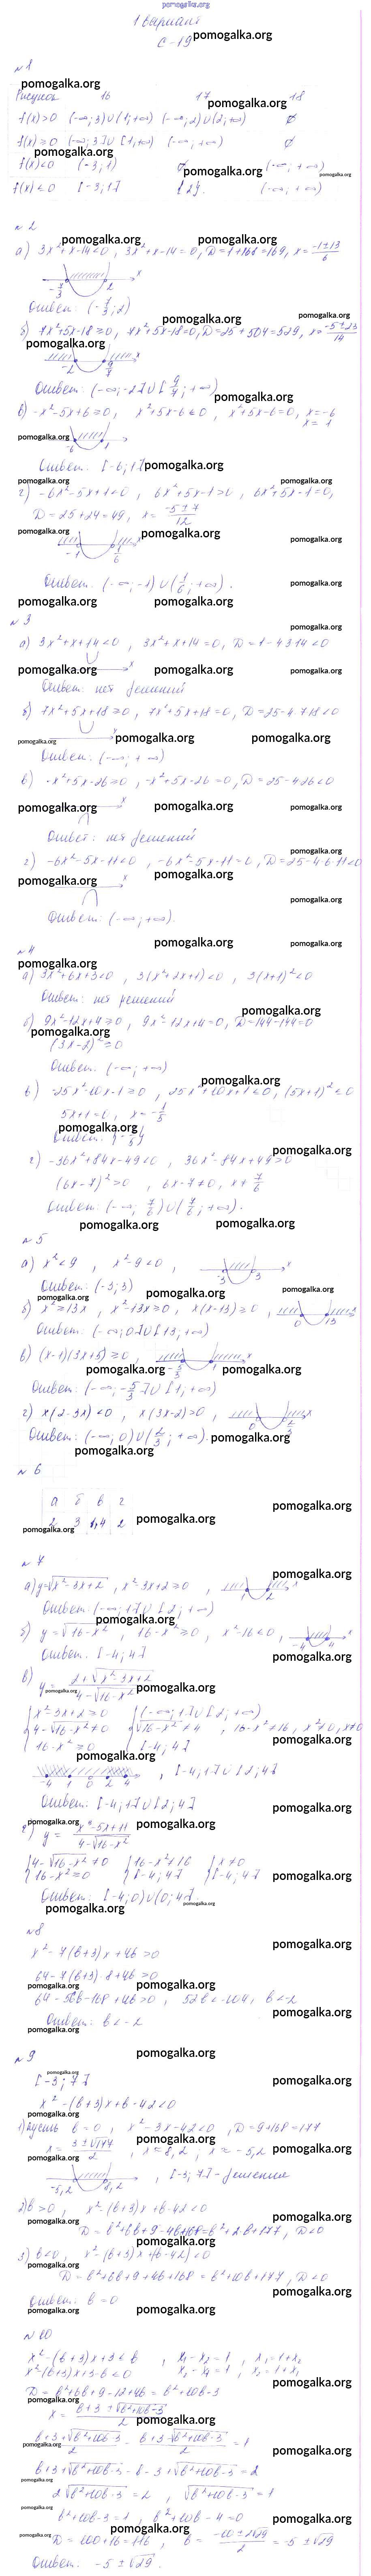 1 вариант
С-19
№1
Рисунок 16 17 18
f(x)>0 (-∞; 3)∪(1; +∞) (-∞; 2)∪(2; +∞) ∅
f(x)≥0 (-∞; 3]∪[1; +∞) (-∞; +∞) ∅
f(x)<0 (-3; 1) ∅ (-∞; +∞)
f(x)≤0 [-3; 1] {2}. (-∞; +∞)
№2
а) 3x²+x-14<0, 3x²+x-14=0, D=1+168=169, x=(-1±13)/6
Ответ: (-7/3; 2)
б) 7x²+5x-18≥0, 7x²+5x-18=0, D=25+504=529, x=(-5±23)/14
Ответ: (-∞; -2]∪[9/7; +∞)
в) -x²-5x+6≥0, x²+5x-6≤0, x²+5x-6=0, x=-6
x=1
Ответ: [-6; 1]
г) -6x²-5x+1<0, 6x²+5x-1>0, 6x²+5x-1=0,
D=25+24=49, x=(-5±7)/12
Ответ: (-∞; -1)∪(1/6; +∞).
№3
а) 3x²+x+14<0, 3x²+x+14=0, D=1-4·3·14<0
Ответ: нет решений
б) 7x²+5x+18≥0, 7x²+5x+18=0, D=25-4·7·18<0
Ответ: (-∞; +∞)
в) -x²+5x-26≥0, -x²+5x-26=0, D=25-4·26<0
Ответ: нет решений
г) -6x²-5x-11<0, -6x²-5x-11=0, D=25-4·6·11<0
Ответ: (-∞; +∞).
№4
а) 3x²+6x+3<0, 3(x²+2x+1)<0, 3(x+1)²<0
Ответ: нет решений
б) 9x²-12x+4≥0, 9x²-12x+4=0, D=144-144=0
(3x-2)²≥0
Ответ: (-∞; +∞)
в) -25x²-10x-1≥0, 25x²+10x+1≤0, (5x+1)²≤0
5x+1=0, x=-1/5
Ответ: {-1/5}
г) -36x²+84x-49<0, 36x²-84x+49>0
(6x-7)²>0, 6x-7≠0, x≠7/6
Ответ: (-∞; 7/6)∪(7/6; +∞).
№5
а) x²<9, x²-9<0,
Ответ: (-3; 3)
б) x²≥13x, x²-13x≥0, x(x-13)≥0,
Ответ: (-∞; 0]∪[13; +∞)
в) (x-1)(3x+5)≥0,
Ответ: (-∞; -5/3]∪[1; +∞)
г) x(2-3x)<0, x(3x-2)>0,
Ответ: (-∞; 0)∪(2/3; +∞).
№6
а б в г
2 3 1,4 2
№7
а) y=√(x²-3x+2), x²-3x+2≥0,
Ответ: (-∞; 1]∪[2; +∞)
б) y=√(16-x²), 16-x²≥0, x²-16≤0,
Ответ: [-4; 4]
в) y=(2+√(x²-3x+2))/(4-√(16-x²))
{x²-3x+2≥0 {(-∞; 1]∪[2; +∞)
4-√(16-x²)≠0 √(16-x²)≠4, 16-x²≠16, x²≠0, x≠0
16-x²≥0 [-4; 4]
, [-4; 1]∪[2; 4]
Ответ: [-4; 1]∪[2; 4]
г) y=(x²-5x+11)/(4-√(16-x²))
{4-√(16-x²)≠0 {16-x²≠16 {x≠0
16-x²≥0 [-4; 4] [-4; 4]
Ответ: [-4; 0)∪(0; 4].
№8
x²-7(b+3)x+4b>0
64-7(b+3)·8+4b>0
64-56b-168+4b>0, 52b<-104, b<-2
Ответ: b<-2
№9
[-3; 7]
x²-(b+3)x+b-42<0
1) Пусть b=0, x²-3x-42<0, D=9+168=177
x=(3±√177)/2, x≈8,2, x≈-5,2
, [-3; 7]-решения
2) b>0, x²-(b+3)x+b-42<0
D=b²+6b+9-4b+168=b²+2b+177, D<0
3) b<0, x²-(b+3)x+(b-42)<0
D=b²+6b+9+4b+168=b²+10b+177, D<0
Ответ: b=0
№10
x²-(b+3)x+3<b, x₁-x₂=1, x₁=1+x₂
x²-(b+3)x+3-b<0
D=b²+6b+9-12+4b=b²+10b-3
x=(b+3±√(b²+10b-3))/2
(b+3+√(b²+10b-3))/2-(b+3-√(b²+10b-3))/2=1
b+3+√(b²+10b-3)-b-3+√(b²+10b-3)=2
2√(b²+10b-3)=2, √(b²+10b-3)=1
b²+10b-3=1, b²+10b-4=0
D=100+16=116, b=(-10±2√29)/2=-5±√29
Ответ: -5±√29.